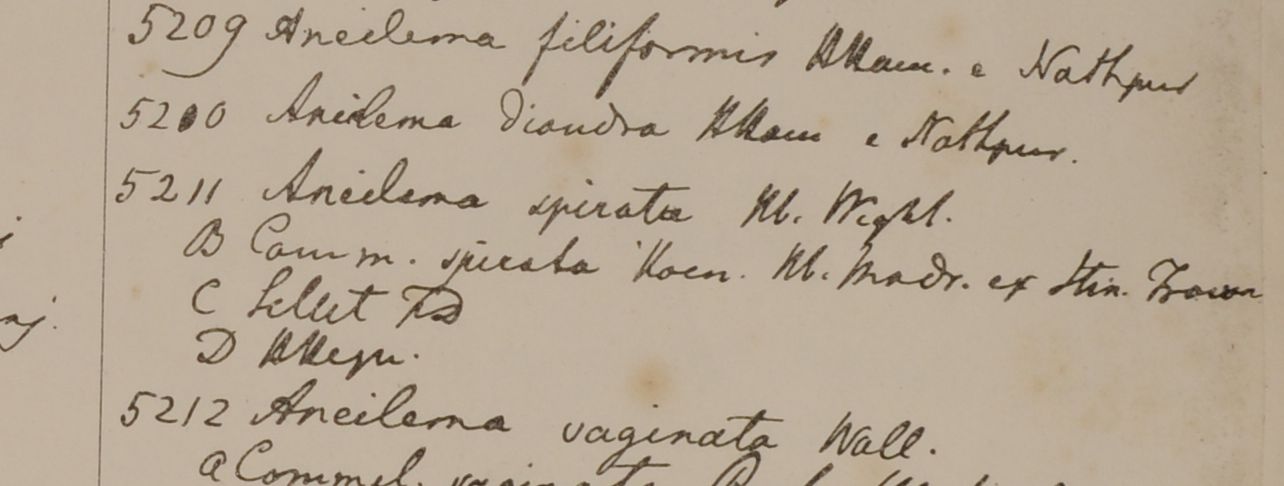 5209 Aneilema filiformis HHam. e Nathpur
5210 Aneilema diandra HHam e Nathpur.
5211 Aneilema spirata Hb. Wight.
B Comm. spirata Koen. Hb. Madr. ex Itin.
C Sillet FD
D HHegn.
5212 Aneilema vaginata Wall.
a Commel. vaginata